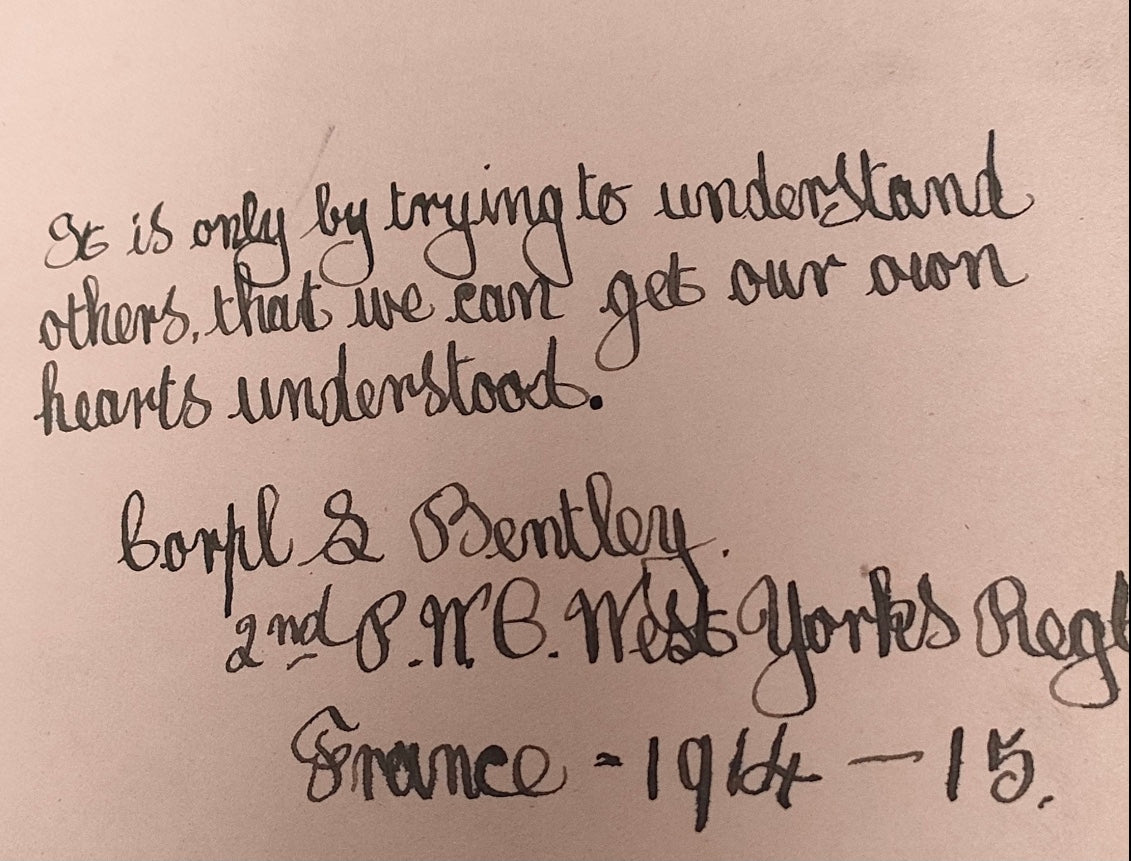 It is only by trying to understand
others, that we can get our own
hearts understood.
Corpl S Bentley.
2nd P.W.O. West Yorks Regt
France - 1914 - 15.